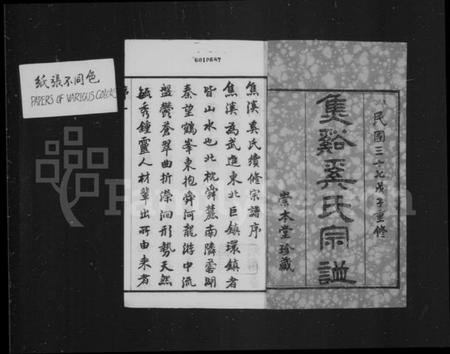 紙張不同色
PAPERS OF VARIOUS COLORS
民國三十七戊子重修
焦谿奚氏宗譜
崇本堂珍藏
焦溪奚氏續修宗譜序
焦溪為武進東北巨鎮環鎮者
皆山水也北枕舜麓南隣
秦望鶴峯東抱舜河龍游中流
盤鬱蒼翠曲折瀠洄形勢天然
毓秀鍾靈人材輩出所由來者